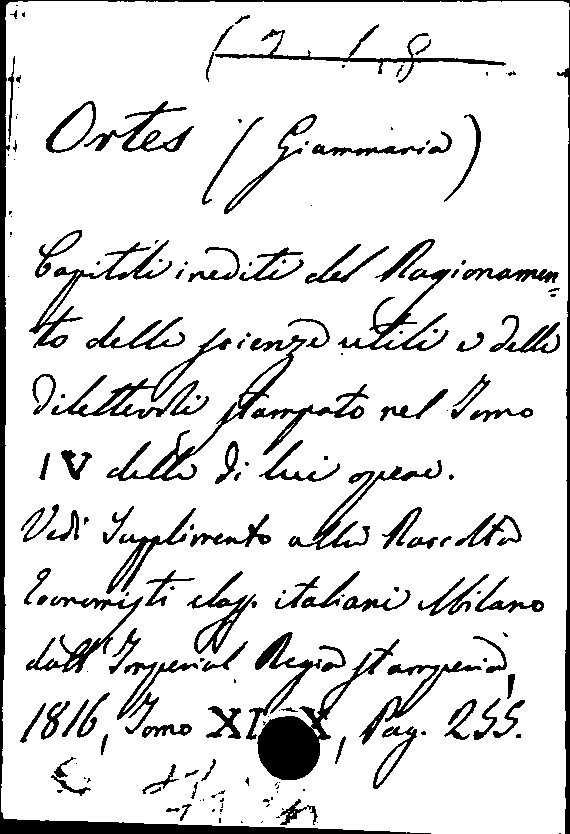 Ortes (Giammaria)
Capitoli inediti del Ragionamen=
to delle scienze utili e delle
dilettevoli stampato nel Tomo
IV delle di lui opere.
Vedi Supplimento alla Raccolta
Economisti class. italiani Milano
dall' Imperial Regia stamperia,
1816, Tomo Pag. 255.